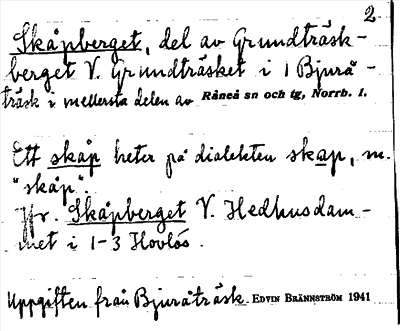 2
Skåpberget, del av Grundträsk-
berget V. Grundträsket i 1 Bjurå-
träsk i mellersta delen av Råneå sn och tg, Norrb. l.
Ett skåp heter på dialekten skap, m.
"skåp".
Jfr. Skåpberget V. Hedhusdam-
met i 1-3 Hovlös.
Uppgiften från Bjuråträsk. EDVIN BRÄNNSTRÖM 1941